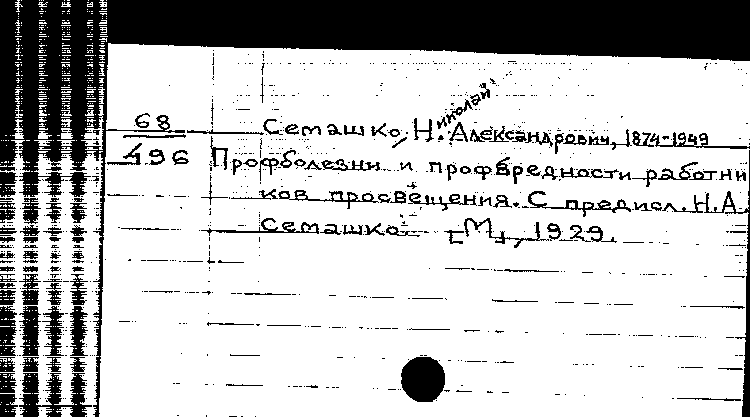 68
496
Семашко, Николай Александрович, 1874-1949
Профболезни и профвредности работни
ков просвещения. С предисл. Н.А.
Семашко. [М], 1929.